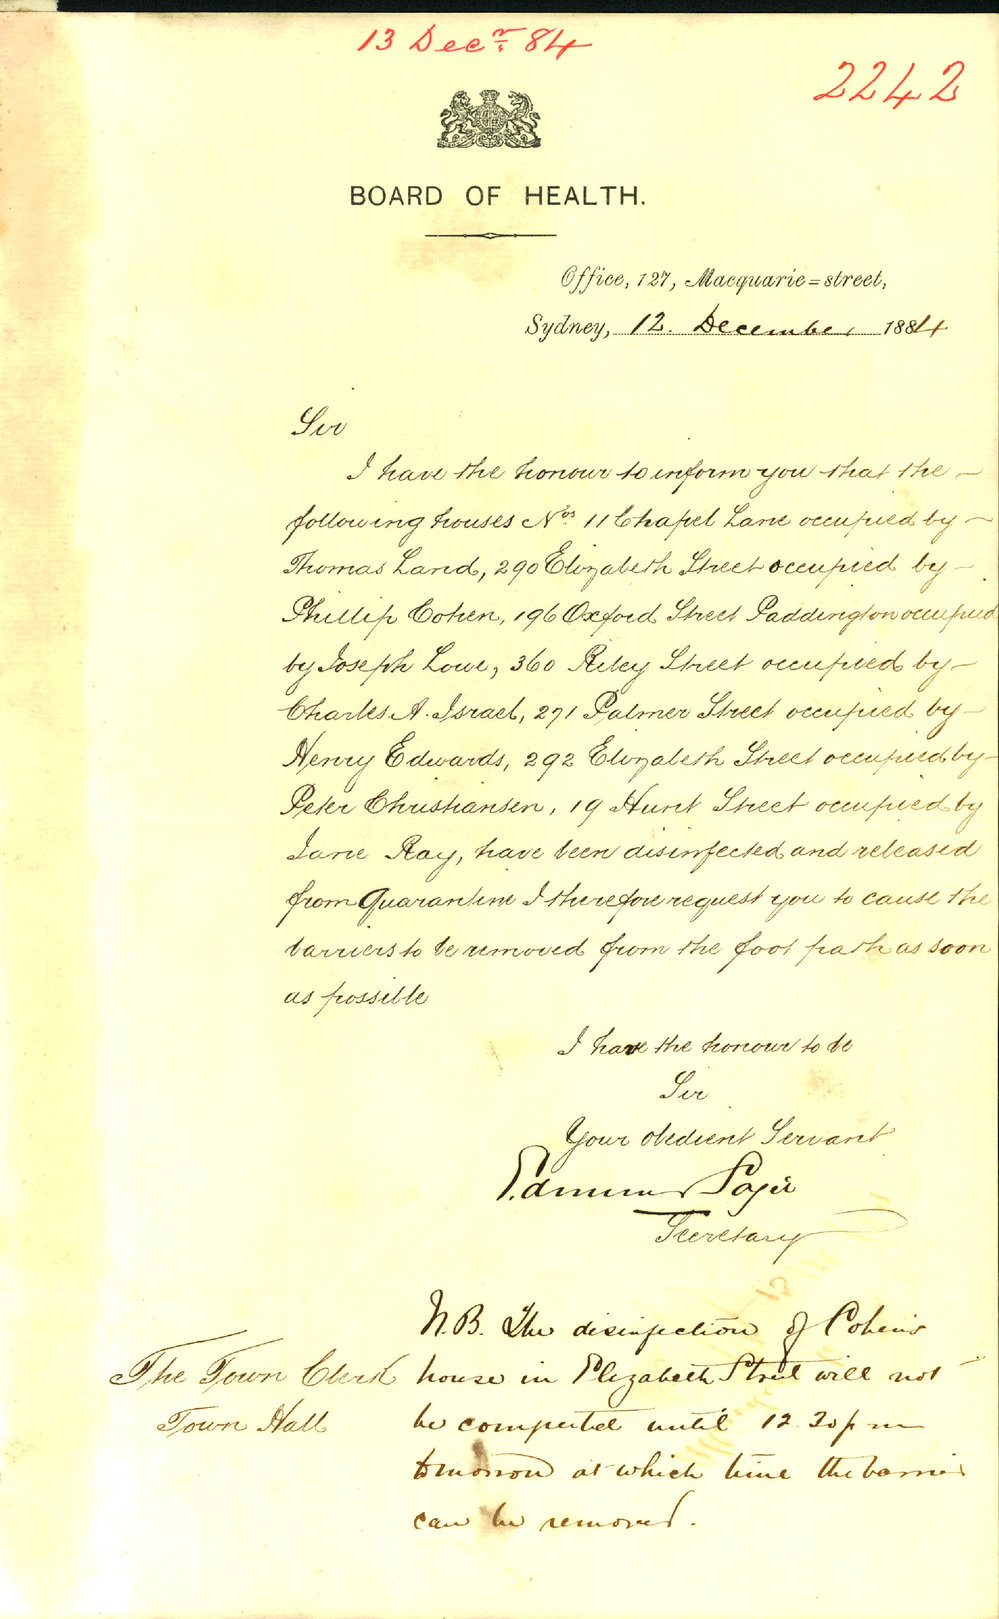 13 Decr. 84
2242
BOARD OF HEALTH.
Office, 127, Macquarie=street,
Sydney, 12. December, 1884
Sir
I have the honour to inform you that the
following houses Nos. 11 Chapel Lane occupied by
Thomas Land, 290 Elizabeth Street occupied by
Phillip Cohen, 196 Oxford Street Paddington occupied
by Joseph Lowe, 360 Riley Street occupied by
Charles A. Israel, 271 Palmer Street occupied by
Henry Edwards, 292 Elizabeth Street occupied by
Peter Christiansen, 19 Hunt Street occupied by
Jane Ray, have been disinfected and released
from Quarantine I therefore request you to cause the
barriers to be removed from the foot path as soon
as possible
I have the honour to be
Sir
Your obedient Servant
Edmund Sager
Secretary
The Town Clerk
Town Hall
N.B. The disinfection of Cohens
house in Elizabeth Street will not
be completed until 12.30 pm
tomorrow at which time the barrier
can be removed.